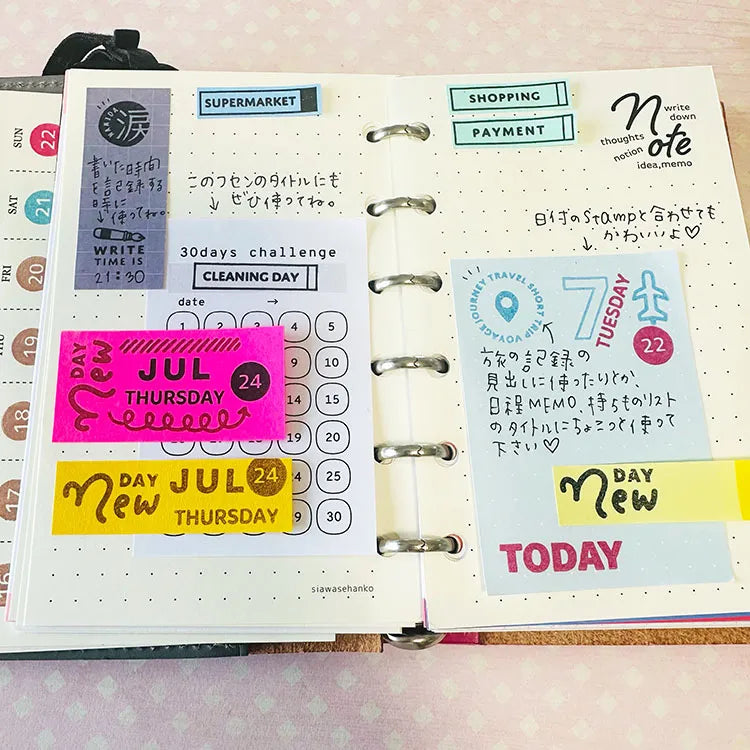 SUN
22
SAT
21
FRI
20
THU
19
18
17
16
NAMIDA
涙
書いた時間
を記録する
時に
↓使ってね。
WRITE
TIME IS
21:30
SUPERMARKET
このフセンのタイトルにも
↓ ぜひ使ってね。
30days challenge
CLEANING DAY
date →
1 2 3 4 5
10
15
JUL
24
THURSDAY
DAY
New
16 17 18 19 20
25
DAY
New
JUL
24
THURSDAY
30
siawasehanko
SHOPPING
PAYMENT
note
write
down
thoughts
notion
idea,memo
日付のstampと合わせても
↓ かわいいよ♡
JOURNEY TRAVEL SHORT TRIP VOYAGE
7
TUESDAY
22
旅の記録の
見出しに使ったりとか、
日程MEMO、持ちものリスト
のタイトルにちょこっと使って
下さい♡
DAY
New
TODAY